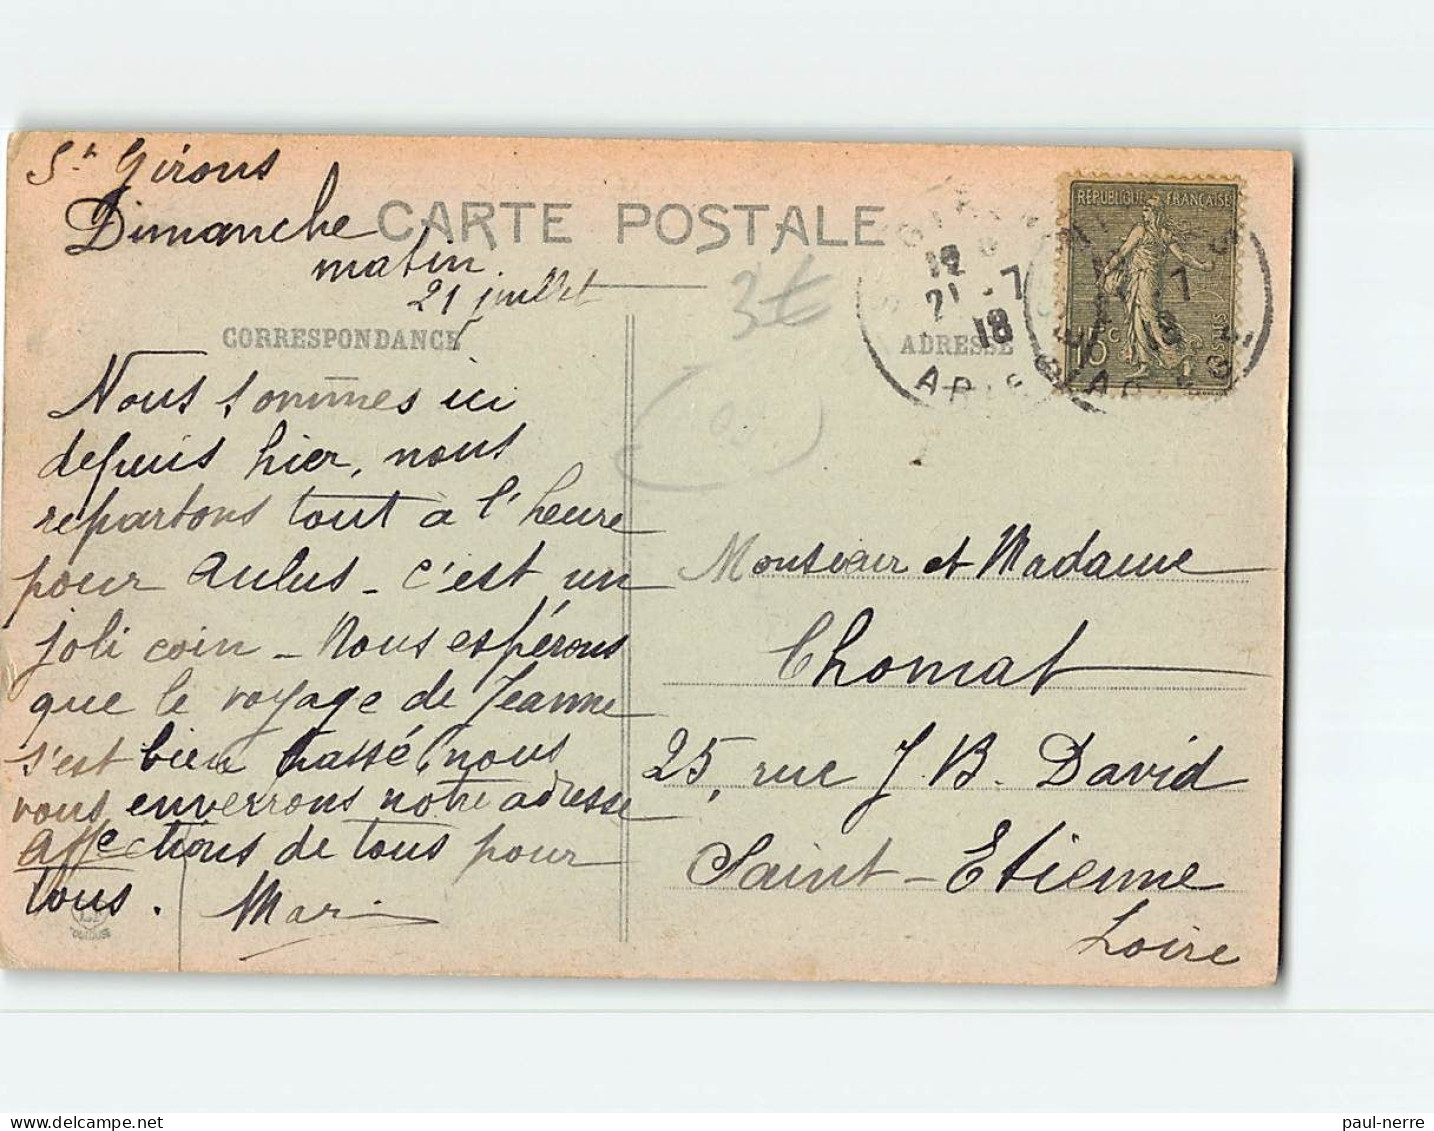 St Girons
Dimanche
matin
21 juillet
CARTE POSTALE
CORRESPONDANCE
ADRESSE
3€
(09)
12
21 -7
18
RÉPUBLIQUE FRANÇAISE
15c
Nous sommes ici
depuis hier, nous
repartons tout à l'heure
pour Aulus - c'est un
joli coin - Nous espérons
que le voyage de Jeanne
s'est bien passé, nous
vous enverrons notre adresse
Affections de tous pour
tous.
Monsieur et Madame
Chomat
25, rue J. B. David
Saint-Etienne
Loire
paul-nerre